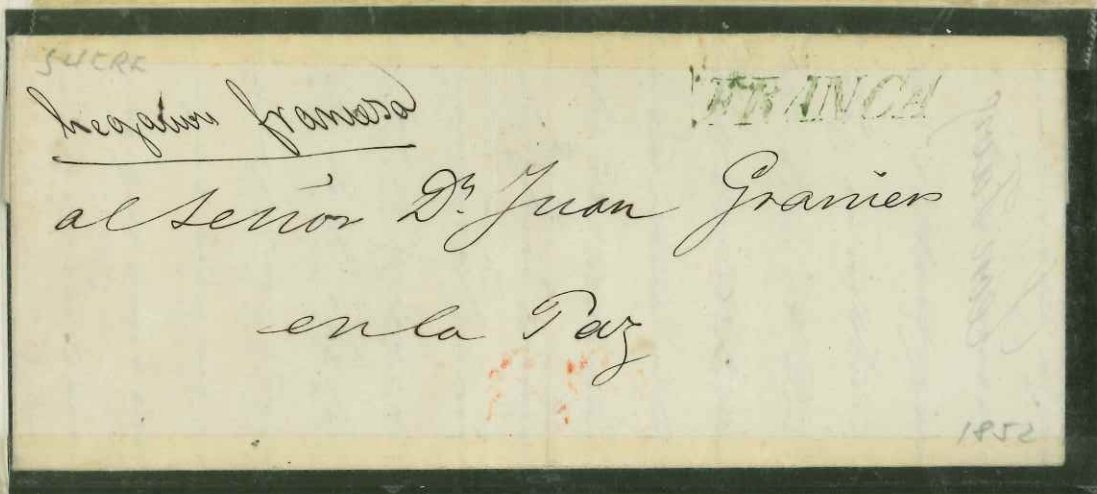 SUCRE
Legacion francesa
FRANCA
al Señor Dn. Juan Granier
en la Paz
1852